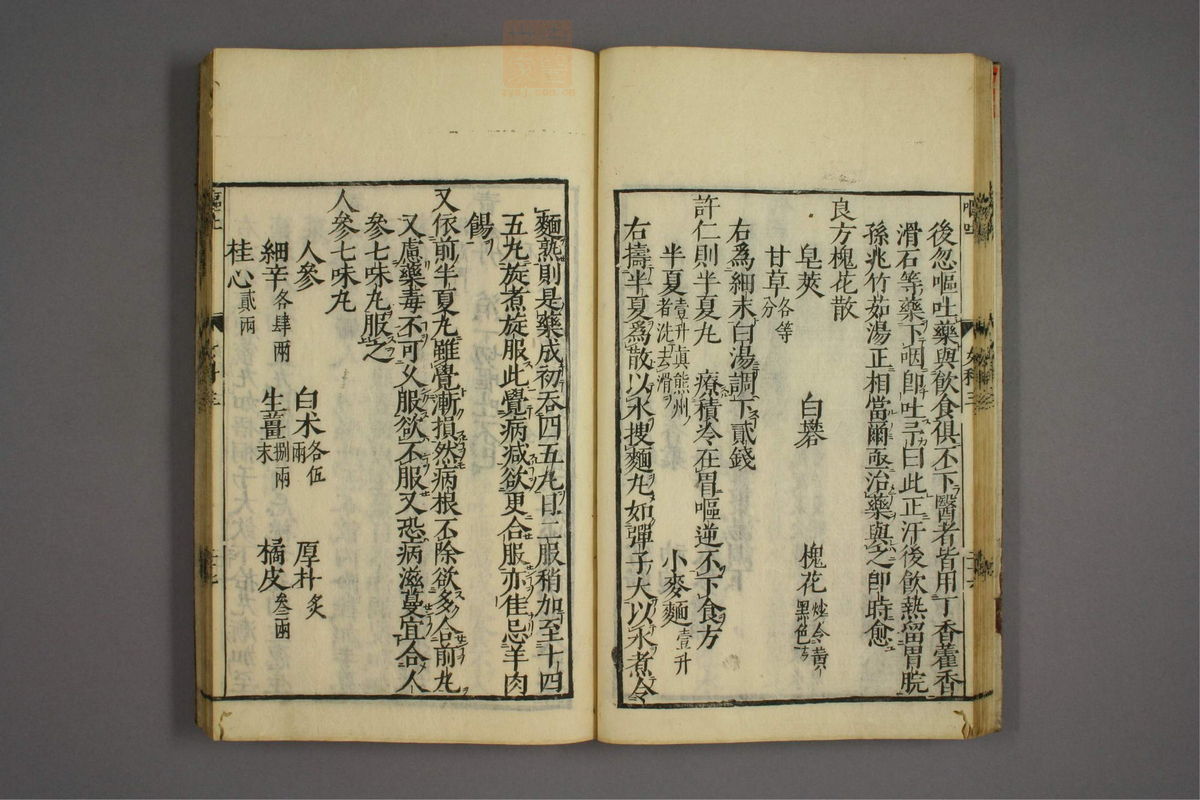 後忽嘔吐藥與飲食俱不下醫者皆用丁香藿香
滑石等藥下咽即吐予曰此正汗後飲熱留胃脘
孫兆竹茹湯正相當爾亟治藥與之即時愈
良方槐花散
皂莢 白礬 槐花炒令黃黑色
甘草各等分
右爲細末白湯調下貳錢
許仁則半夏丸 療積冷在胃嘔逆不下食方
半夏壹升真熊州者洗去滑 小麥麵壹升
右擣半夏爲散以水搜麵丸如彈子大以水煮令
麵熟則是藥成初吞四五丸日二服稍加至十四
五丸旋煮旋服此覺病減欲更合服亦佳忌羊肉
餳
又依前半夏丸雖覺漸損然病根不除欲多合前丸
又慮藥毒不可久服欲不服又恐病滋蔓宜合人
參七味丸服之
人參七味丸
人參 白朮各伍兩 厚朴炙
細辛各肆兩 生薑捌兩末 橘皮叁兩
桂心貳兩